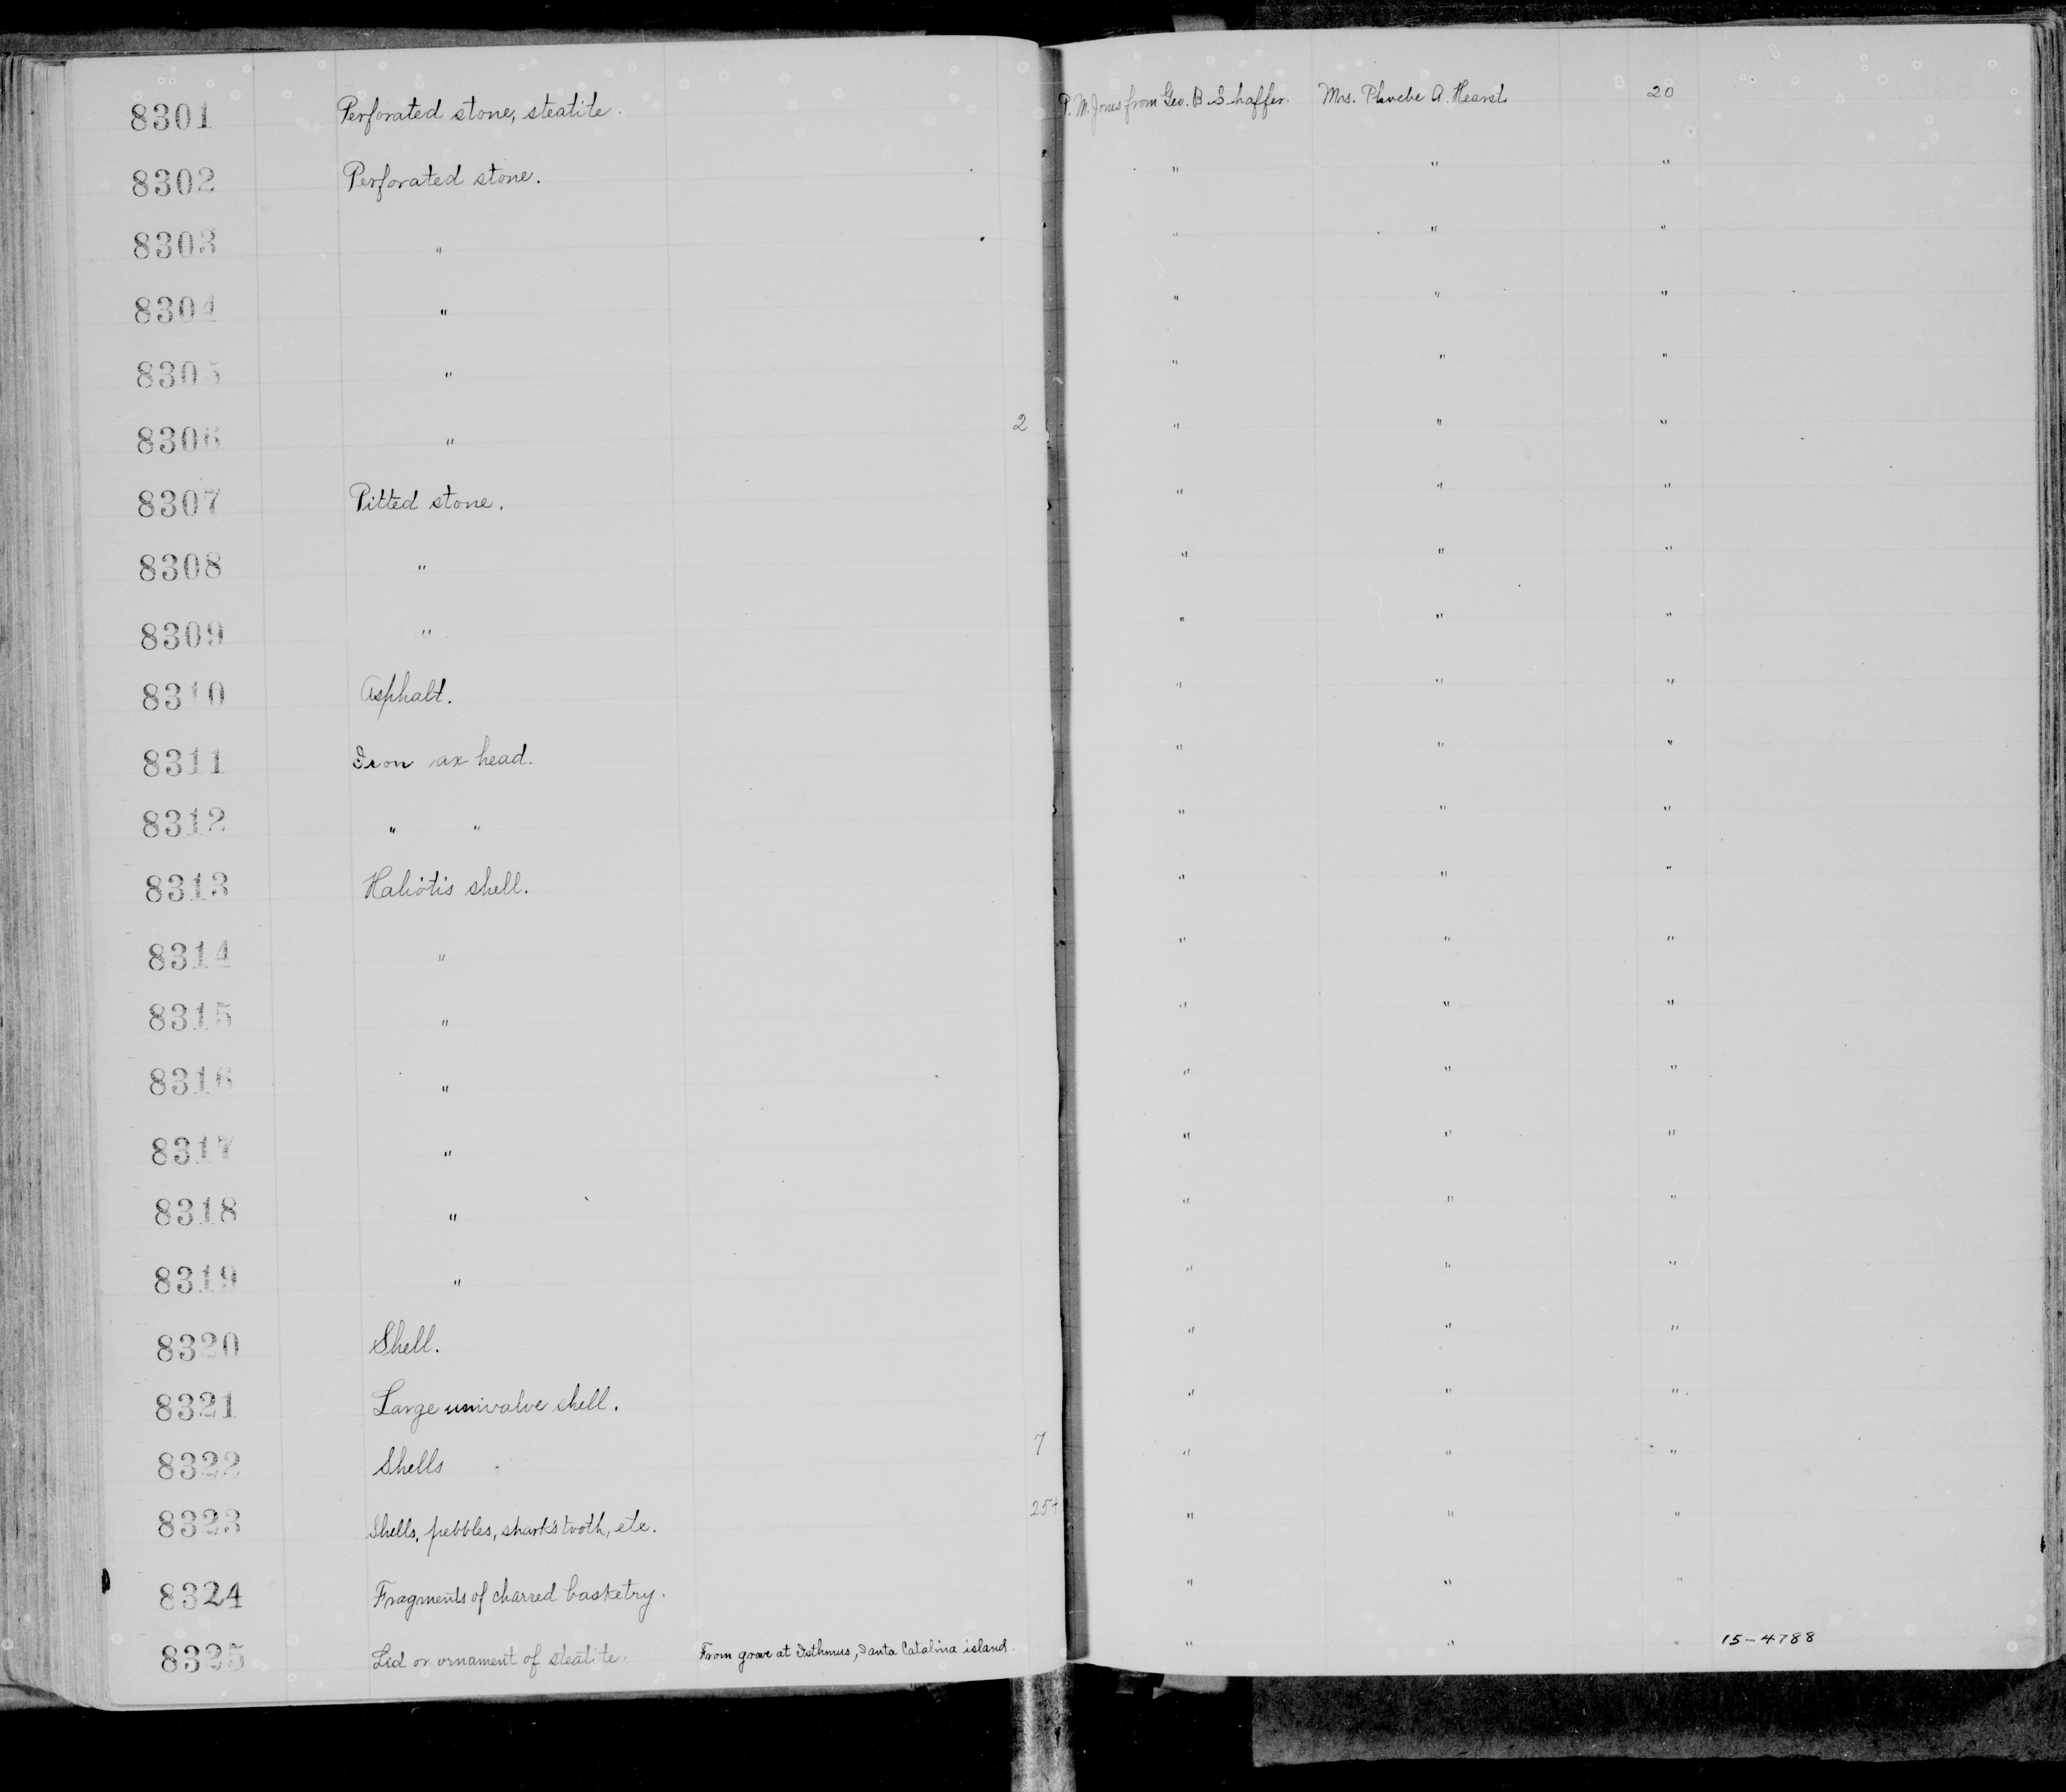 8301 Perforated stone, steatite. P. M. Jones from Geo. B. Shaffer. Mrs. Phoebe A. Hearst 20
8302 Perforated stone. " " "
8303 " " " "
8304 " " " "
8305 " " " "
8306 " 2 " " "
8307 Pitted stone. " " "
8308 " " " "
8309 " " " "
8310 Asphalt. " " "
8311 Iron ax head. " " "
8312 " " " " "
8313 Haliotis shell. " " "
8314 " " " "
8315 " " " "
8316 " " " "
8317 " " " "
8318 " " " "
8319 " " " "
8320 Shell. " " "
8321 Large univalve shell. " " "
8322 Shells 7 " " "
8323 Shells, pebbles, shark's tooth, etc. 25+ " " "
8324 Fragments of charred basketry. " " "
8325 Lid or ornament of steatite. From grave at Isthmus, Santa Catalina island. " " " 15-4788